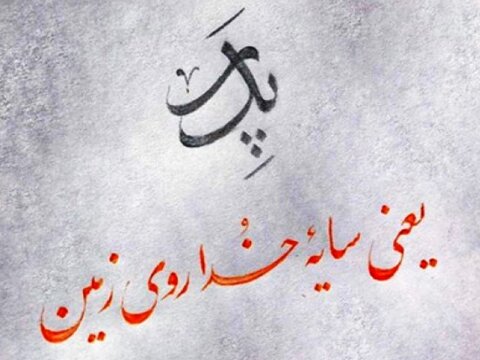 پدر
یعنی سایهٔ خدا روی زمین